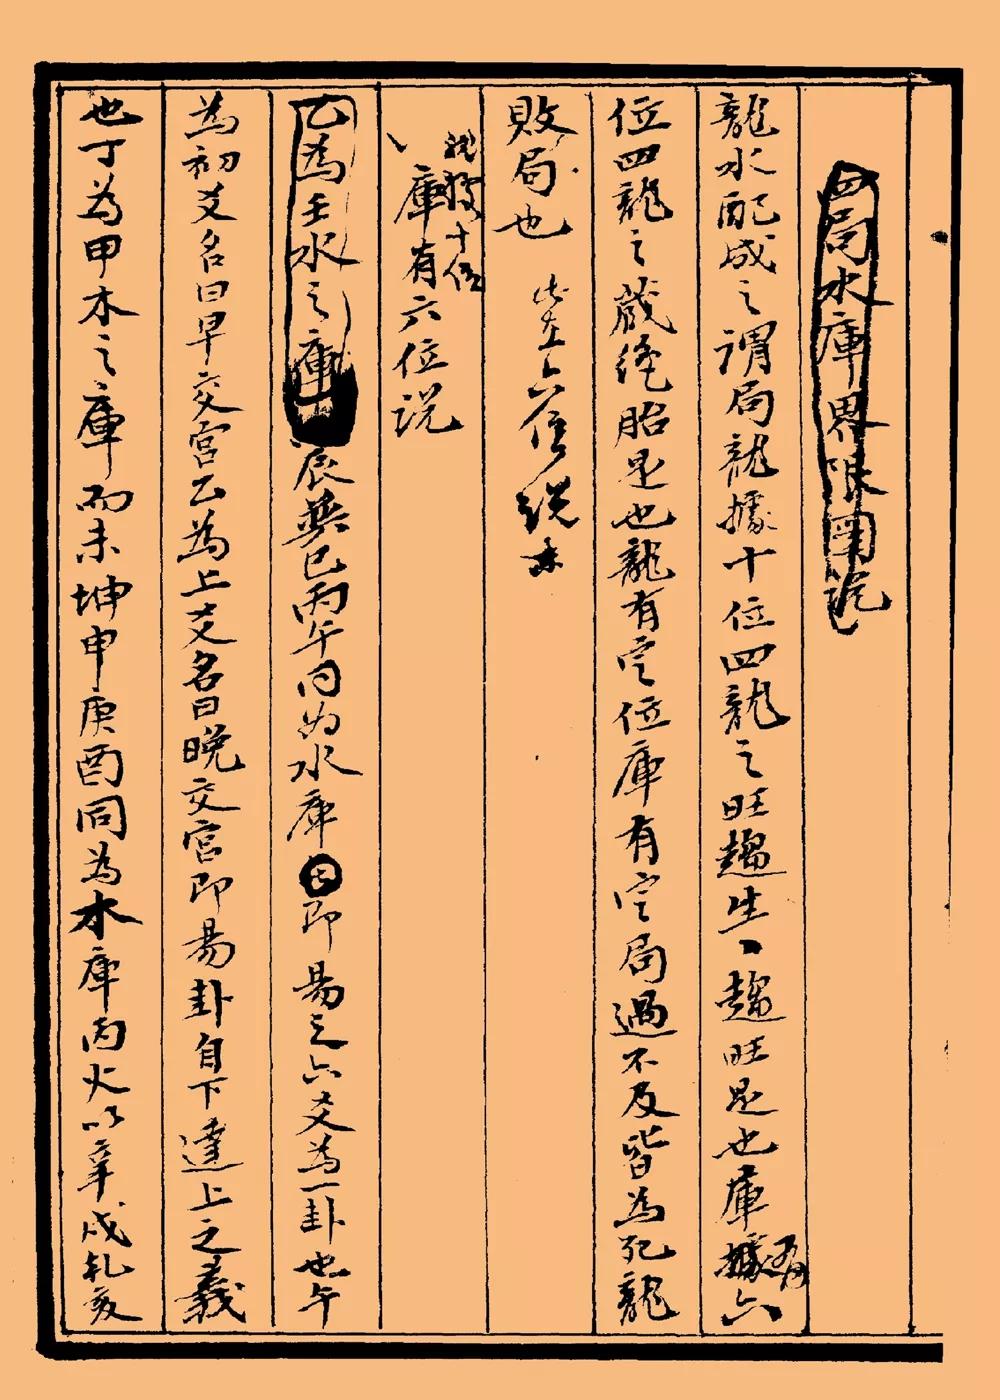 四局水庫界限圖說
龍水配成之謂局龍據十位四龍之旺趨生、趨旺是也庫據有六
位四龍之葬絕胎是也龍有定位庫有定局過不及皆為死龍
敗局也 六位說
十位
庫有六位說
乙為壬水之庫辰巽巳丙午同为水庫即易之六爻為一卦也午
為初爻名曰早交宮乙為上爻名曰晚交宮即易卦自下達上之義
也丁为甲木之庫而未坤申庚酉同為木庫丙火以辛戌乹亥